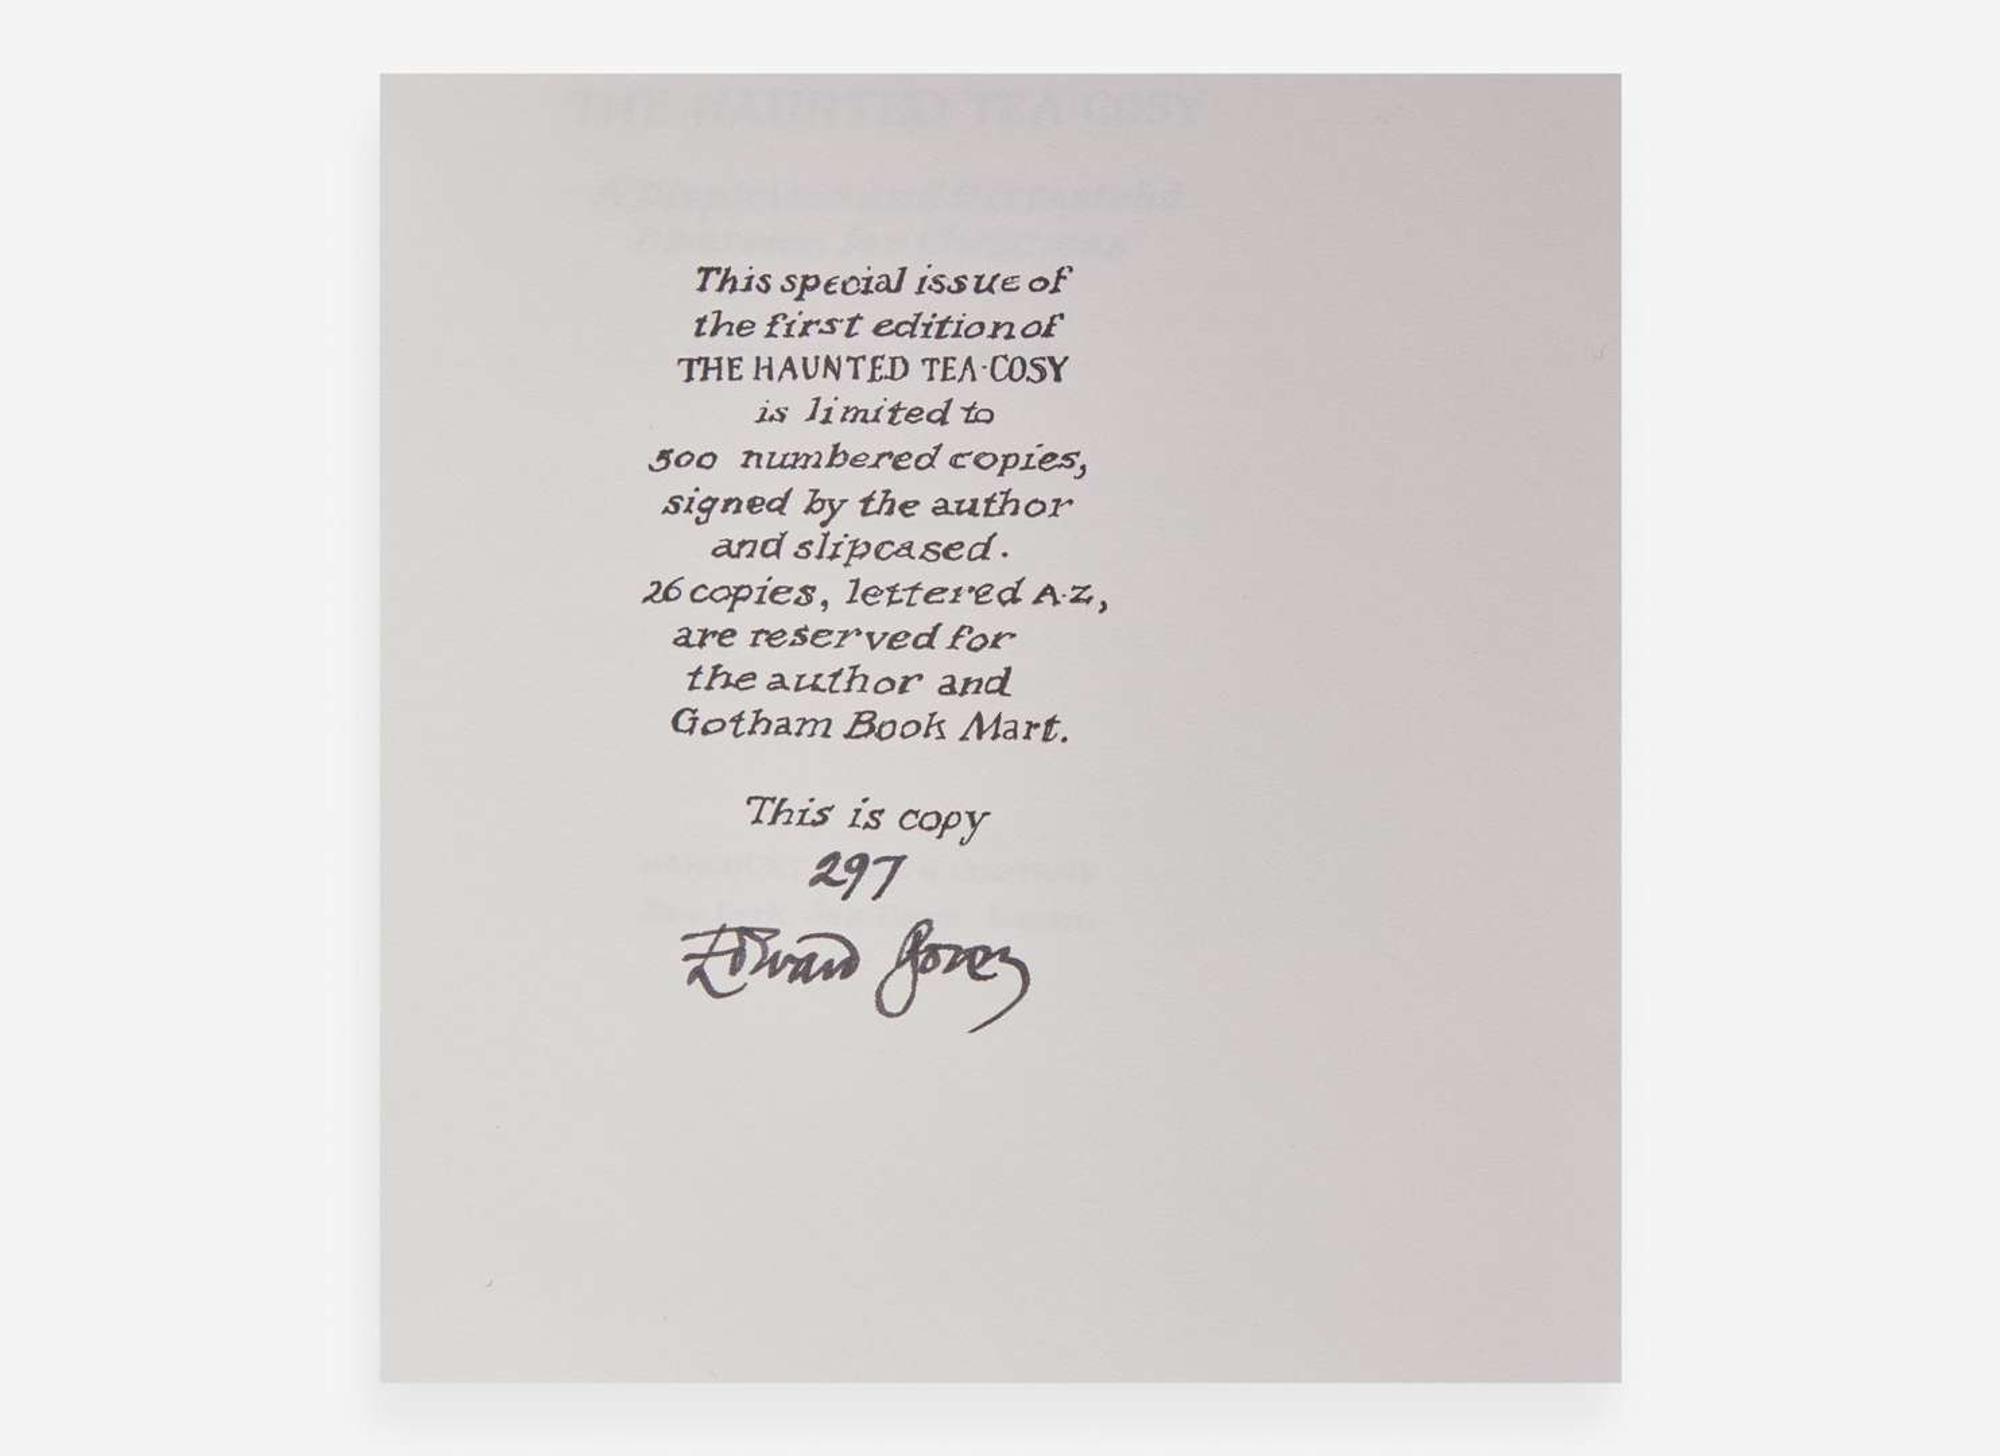 THE HAUNTED TEA·COSY
This special issue of
the first edition of
THE HAUNTED TEA·COSY
is limited to
500 numbered copies,
signed by the author
and slipcased.
26 copies, lettered A·Z,
are reserved for
the author and
Gotham Book Mart.
This is copy
297
Edward Gorey